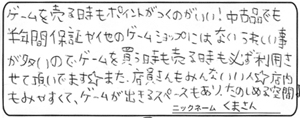 ゲームを売る時もポイントがつくのがいい!中古品でも
半年間保証や、他のゲームショップにはないうれしい事
が多いので、ゲームを買う時も売る時も必ず利用さ
せて頂いてます☆また、店員さんもみんないい人☆店内
もみやすくて、ゲームが出きるスペースもあり、たのしめる空間♪
ニックネーム くまさん